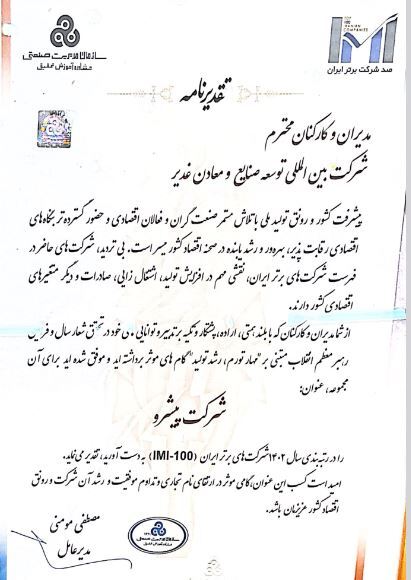 سازمان مدیریت صنعتی
مشاوره آموزش تحقیق
TOP
100
IRANIAN
COMPANIES
IMI
صد شرکت برتر ایران
تقدیرنامه
مدیران و کارکنان محترم
شرکت بین المللی توسعه صنایع و معادن غدیر
پیشرفت کشور و رونق تولید ملی با تلاش مستمر صنعت گران و فعالان اقتصادی و حضور گسترده تر بنگاه های
اقتصادی رقابت پذیر، بهره ور و رشد یابنده در صحنه اقتصاد کشور میسر است. بی تردید، شرکت های حاضر در
فهرست شرکت های برتر ایران، نقشی مهم در افزایش تولید، اشتغال زایی، صادرات و دیگر متغیرهای
اقتصادی کشور دارند.
از شما مدیران و کارکنان که با بلند همتی، اراده، پشتکار و تکیه بر تدبیر و توانایی های خود در تحقق شعار سال و
رهبر معظم انقلاب مبتنی بر "مهار تورم، رشد تولید" گام های موثر برداشته اید و موفق شده اید برای آن
مجموعه، عنوان:
شرکت پیشرو
را در رتبه بندی سال ۱۴۰۲ شرکت های برتر ایران (IMI-100) به دست آورید، تقدیر می نماید.
امید است کسب این عنوان، گامی موثر در ارتقای نام تجاری و تداوم موفقیت و رشد آن شرکت و رونق
اقتصاد کشور عزیزمان باشد.
مصطفی مومنی
مدیر عامل
سازمان مدیریت صنعتی